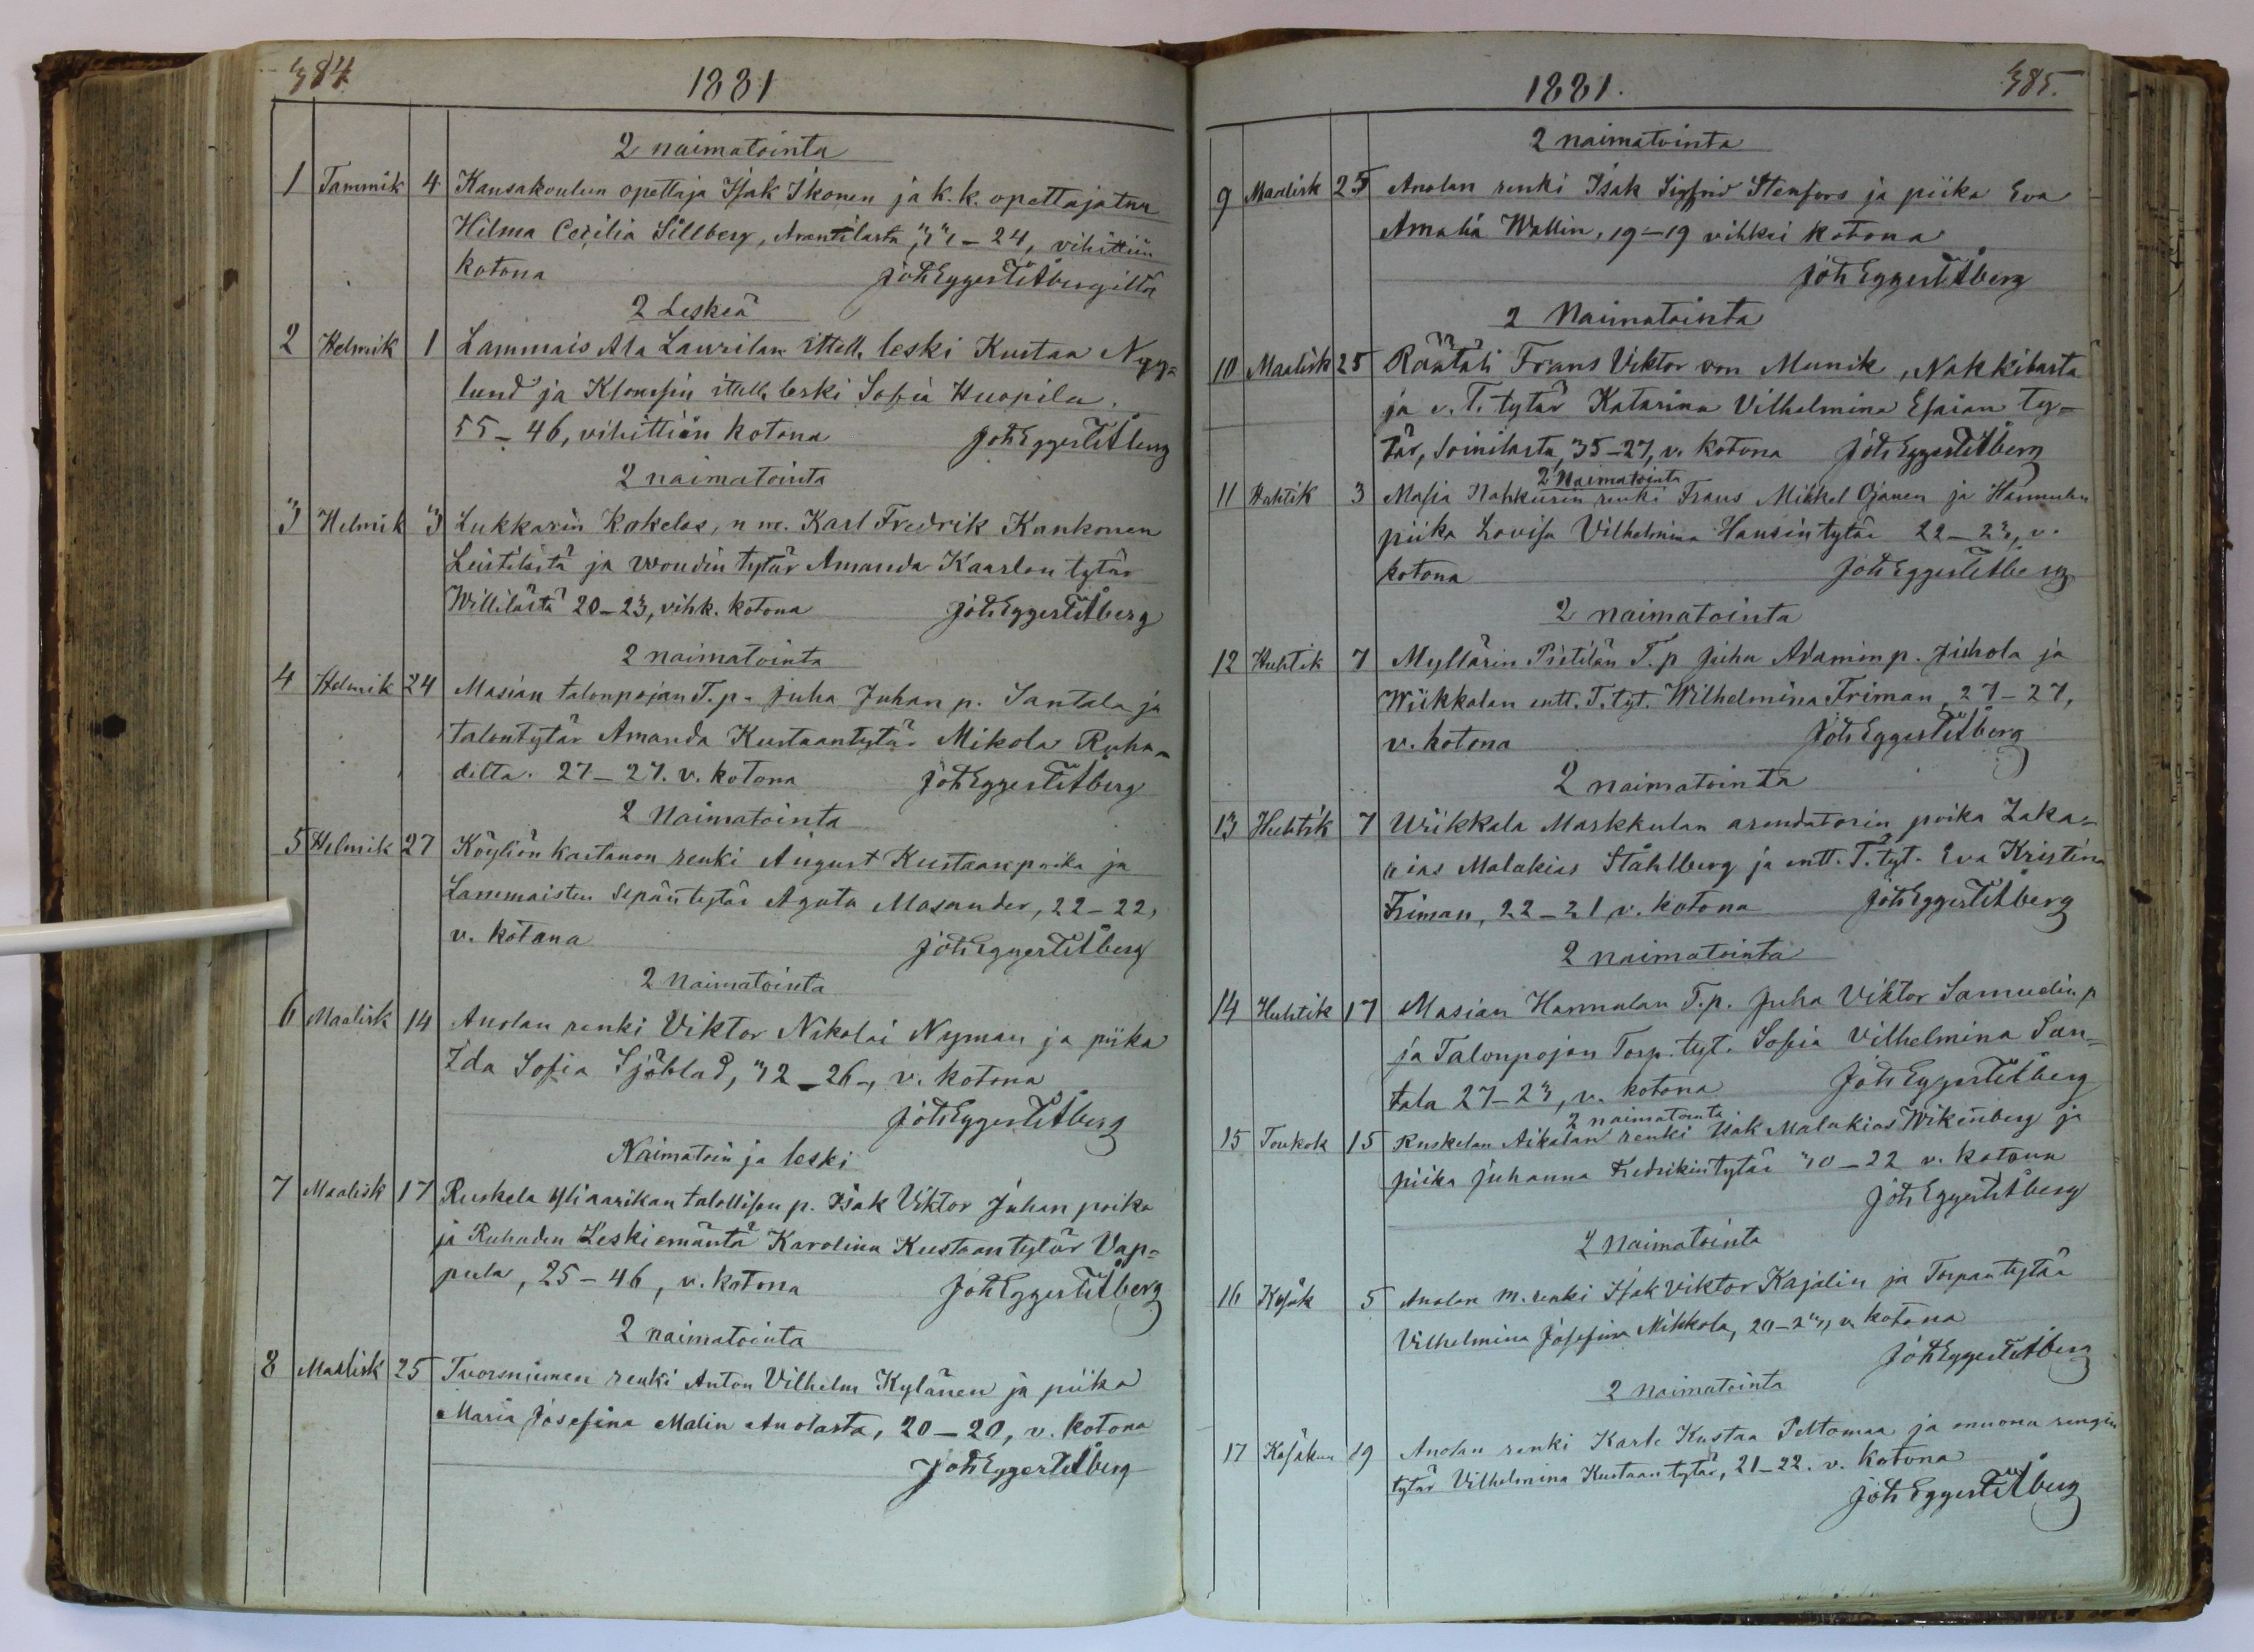 384
1881
2 naimatointa
1 Tammik 4 Kansakoulun opettaja Isak Ikonen ja k. k. opettajatar
Hilma Cecilia Sillberg, Anentilasta, 31–24, vihittiin
kotona Joh Eggert Åbergiltä
2 Leskeä
2 Helmik 1 Lammais Ala Laurilan ittell. leski Kustaa Nyg=
lund ja ittell. leski Sofia Huopila.
55–46, vihittiin kotona Joh Eggert Åberg
2 naimatointa
3 Helmik 3 Lukkarin Kokelas, n m. Karl Fredrik Kankonen
Leistilästä ja woudin tytär Amanda Kaarlon tytär
Willilästä 20–23, vihk. kotona Joh Eggert Åberg
2 naimatointa
4 Helmik 24 Masian talonpojan T. p. Juha Juhan p. Santala ja
talontytär Amanda Kustaantytär Mikola Ruha-
dilta. 27–27. v. kotona Joh Eggert Åberg
2 Naimatointa
5 Helmik 27 Köyliön kartanon renki August Kustaanpoika ja
Lammaisten Sepäntytär Agata Masander, 22–22,
v. kotona Joh Eggert Åberg
2 Naimatointa
6 Maalisk 14 Anolan renki Viktor Nikolai Nyman ja piika
Ida Sofia Sjöblad, 32–26, v. kotona
Joh Eggert Åberg
Naimatoin ja leski
7 Maalisk 17 Ruskela Yliaarikan talollisen p. Isak Viktor Juhan poika
ja Ruhaden Leskiemäntä Karolina Kustaantytär Vap=
pula, 25–46, v. kotona Joh Eggert Åberg
2 naimatointa
8 Maalisk 25 Tuorsniemen renki Anton Vilhelm Kylänen ja piika
Maria Josefina Malin Anolasta, 20–20, v. kotona
Joh Eggert Åberg
1881.
385.
2 naimatointa
9 Maalisk 25 Anolan renki Isak Sigfrid Stenfors ja piika Eva
Amalia Wallin, 19–19 vihkei kotona
Joh Eggert Åberg
2 Naimatointa
10 Maalisk 25 Räätäli Frans Viktor von Munik, Nakkilasta
ja e. T. tytär Katarina Vilhelmina Esaian ty=
tär, Soinilasta, 35–27, v. kotona Joh Eggert Åberg
2 Naimatointa
11 Huhtik 3 Masia Nahkurin renki Frans Mikkel Ojanen ja Hannulan
piika Lovisa Vilhelmina Hansintytär 22–23, v.
kotona Joh Eggert Åberg
2 naimatointa
12 Huhtik 7 Myllärin Pietilän T. p Juha Adamin p. Juhola ja
Wiikkalan entt. T. tyt. Wilhelmina Friman, 27–27,
v. kotona Joh Eggert Åberg
2 naimatointa
13 Huhtik 7 Wiikkala Markkulan arendatorin poika Zaka=
rias Malakias Ståhlberg ja entt. T. tyt. Eva Kristina
Friman, 22–21, v. kotona Joh Eggert Åberg
2 naimatointa
14 Huhtik 17 Masian Hannulan T. p. Juha Viktor Samuelin p
ja Talonpojan Torp. tyt. Sofia Vilhelmina San=
tala 27–23, v. kotona Joh Eggert Åberg
2 naimatointa
15 Toukok 15 Ruskelan Aikalan renki Isak Malakias Wikenberg ja
piika Juhanna Fredrikintytär 30–22 v. kotona
Joh Eggert Åberg
2 Naimatointa
16 Kesäk 5 Anolan m. renki Isak Viktor Kajalin ja Torpantytär
Vilhelmina Josefina Mikkola, 20–23, v. kotona
Joh Eggert Åberg
2 Naimatointa
17 Kesäkuu 19 Anolan renki Karle Kustaa Peltomaa ja muona rengin
tytär Vilhelmina Kustaantytär, 21–22. v. kotona
Joh Eggert Åberg